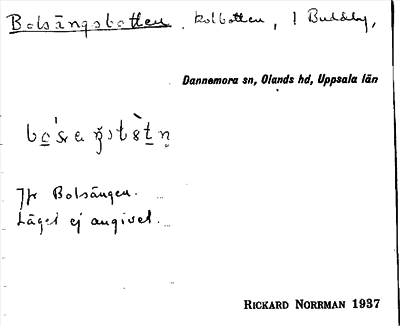 Bolsängsbotten. kolbotten, 1
Dannemora sn, Olands hd, Uppsala län
Jfr Bolsängen.
Läget ej angivet.
RICKARD NORRMAN 1937